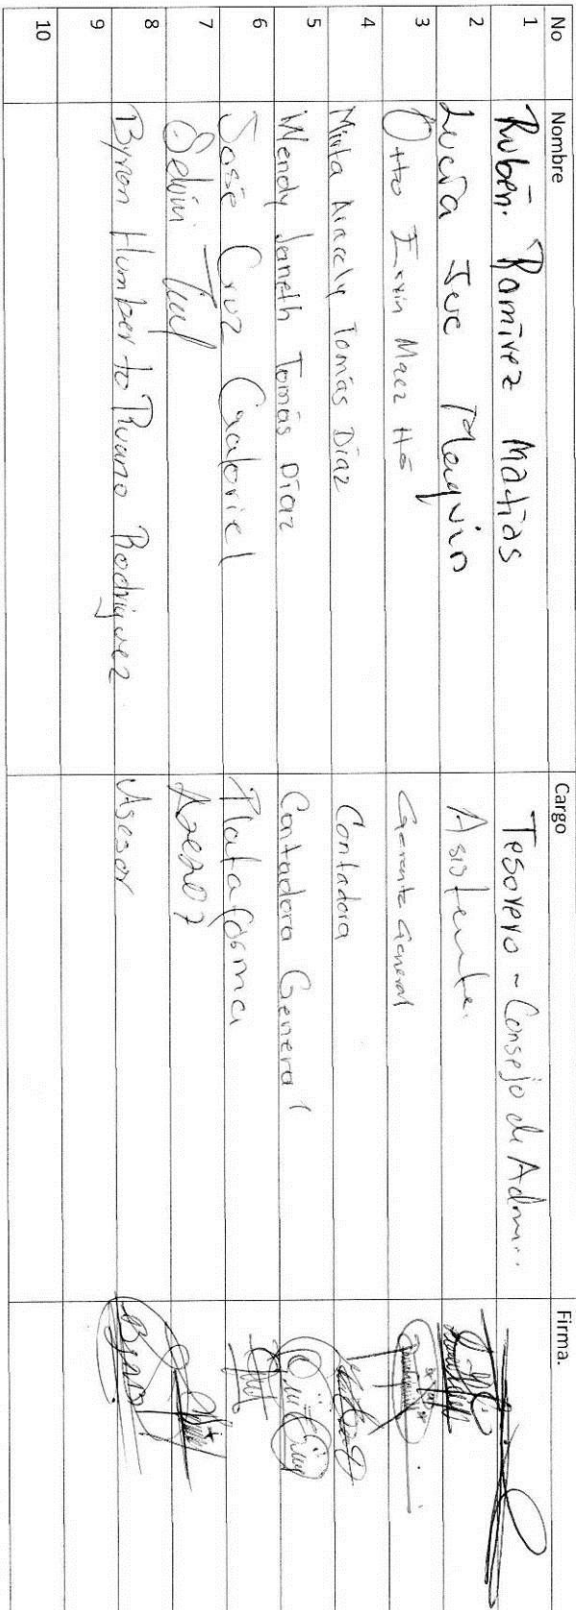 No Nombre Cargo Firma.
1 Rubén. Ramírez Matías Tesorero - Consejo de Admu..
2 Lucía Juc Maquin Asistente.
3 Otto Ervin Maez Hó Gerente General
4 Mirta Aracely Tomás Díaz Contadora
5 Wendy Janeth Tomás Díaz Contadora General
6 José Cruz Gabriel Plataforma
7 Selvin Asesor
8 Byron Humberto Ruano Rodriguez Asesor
9
10